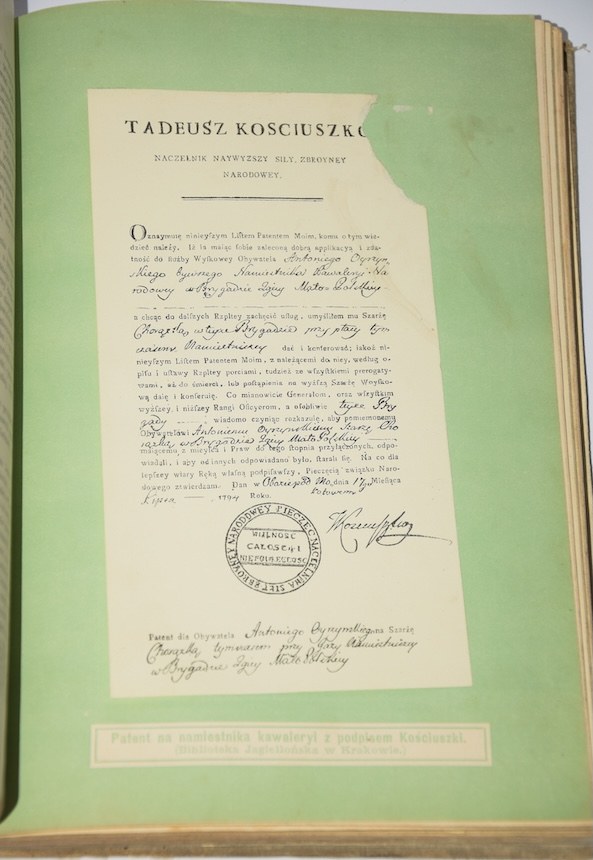 TADEUSZ KOSCIUSZKO
NACZELNIK NAYWYZSZY SIŁY ZBROYNEY
NARODOWEY.
Oznaymuię ninieyſzym Liſtem Patentem Moim, komu o tym wie-
dzieć należy. Iż Ia maiąc ſobie zaleconą dobrą applikacyą i zda-
tność do ſłużby Woyſkowey Obywatela Antoniego
skiego bywszego Namiestnika Kawaleryi Na-
rodowey w Brygadzie Małopolskiey
a chcąc do dalſzych Rzpltey zachęcić uſług, umyśliłem mu Szarżę
Chorążego w teyże Brygadzie przy płacy tym
czasem Namiestniczey dać i konferować; iakoż ni-
nieyſzym Liſtem Patentem Moim, z należącemi do niey, według o-
piſu i uſtawy Rzpltey porcyami, tudzież ze wſzyſtkiemi prerogaty-
wami, aż do śmierci, lub poſtąpienia na wyżſzą Szarżę Woyſko-
wą daię i konferuię. Co mianowicie Generałom, oraz wſzelkim
wyżſzey, i niżſzey Rangi Officyerom, a oſobliwie teyże Bry
gady wiadomo czyniąc rozkazuię, aby pomienionemu
Obywatelowi Antoniemu Szarżę Cho
rążego w Brygadzie Małopolskiey
maiącemu z mieyſca i Praw do tego ſtopnia przyłączonych, odpo-
wiadali, i aby od innych odpowiadano było, ſtarali ſię. Na co dla
lepſzey wiary Ręką właſną podpiſawſzy, Pieczęcią związku Naro-
dowego ztwierdzam. Dan w Obozie pod dnia 17 Mieſiąca
Lipca 1794 Roku.
PIECZĘĆ NACZELNIKA SIŁY ZBROYNEY NARODOWEY
WOLNOSC
CAŁOSC I
NIEPODLEGŁOSC
Kosciuszko
Patent dla Obywatela Antoniego na Szarżę
Chorążego tymczasem przy płacy Namiestniczey
w Brygadzie Małopolskiey
Patent na namiestnika kawaleryi z podpisem Kościuszki.
(Biblioteka Jagiellońska w Krakowie.)